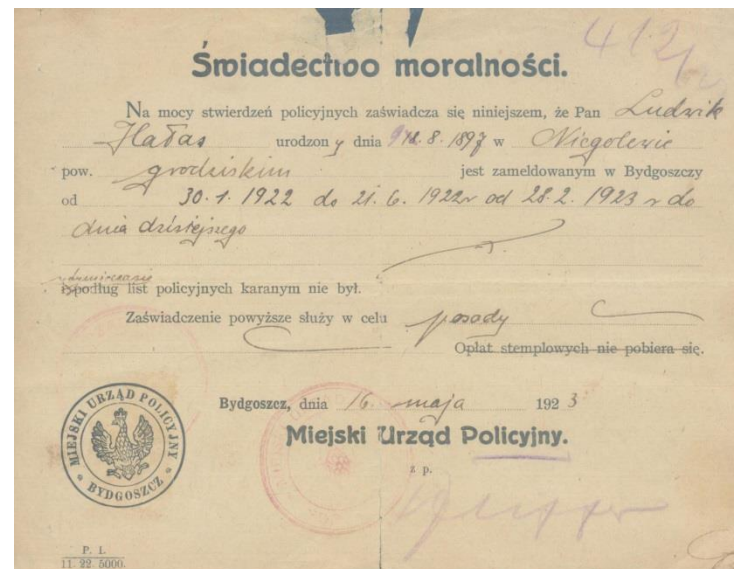 412
Świadectwo moralności.
Na mocy stwierdzeń policyjnych zaświadcza się niniejszem, że Pan Ludwik
Hałas urodzony dnia 18.8.1897 w Niegolewie
pow. grodziskim jest zameldowanym w Bydgoszczy
od 30.1.1922 do 21.6.1922r od 28.2.1923 r do
dnia dzisiejszego
i podług list policyjnych karanym nie był.
Zaświadczenie powyższe służy w celu posady
Opłat stemplowych nie pobiera się.
MIEJSKI URZĄD POLICYJNY
BYDGOSZCZ
Bydgoszcz, dnia 16. maja 1923
Miejski Urząd Policyjny.
z p.
P. I.
11. 22. 5000.